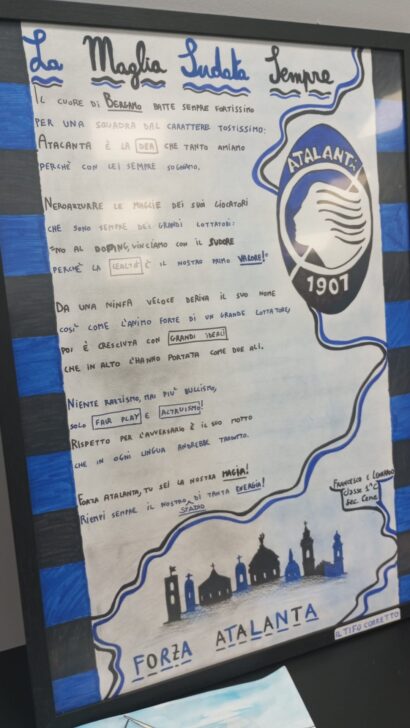 La Maglia Sudata Sempre
IL CUORE DI BERGAMO BATTE SEMPRE FORTISSIMO
PER UNA SQUADRA DAL CARATTERE TOSTISSIMO:
ATALANTA È LA DEA CHE TANTO AMIAMO
PERCHÈ CON LEI SEMPRE SOGNIAMO.
ATALANTA
1907
NERDAZZURRE LE MAGLIE DEI SUOI GIOCATORI
CHE SONO SEMPRE DEI GRANDI LOTTATORI:
"NO AL DOPING, VINCIAMO CON IL SUDORE
PERCHÈ LA LEALTÀ È IL NOSTRO PRIMO VALORE!"
DA UNA NINFA VELOCE DERIVA IL SUO NOME
COSÌ COME L'ANIMO FORTE DI UN GRANDE LOTTATORE,
POI È CRESCIUTA CON GRANDI IDEALI
CHE IN ALTO L'HANNO PORTATA COME DUE ALI.
NIENTE RAZZISMO, MAI PIÙ BULLISMO,
SOLO FAIR PLAY E ALTRUISMO!
RISPETTO PER L'AVVERSARIO È IL SUO MOTTO
CHE IN OGNI LINGUA ANDREBBE TRADOTTO.
FORZA ATALANTA, TU SEI LA NOSTRA MAGIA!
RIEMPI SEMPRE IL NOSTRO STADIO DI TANTA ENERGIA!
FRANCESCO E LEONARDO
CLASSE 1ªC
SEC. CENE
FORZA ATALANTA
IL TIFO CORRETTO